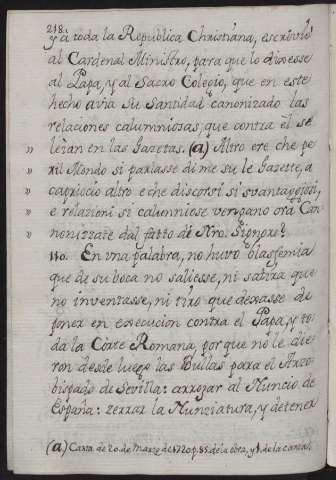 218.
y à toda la Republica Christiana, escrivió
al Cardenal Ministro, para que lo dixesse
al Papa, y al Sacro Colegio, que en este
hecho avia su Santidad canonizado las
relaciones calumniosas, que contra él se
leian en las Gazetas. (a) Altro ere che pe
" ril Mondo si parlasse di me su le Gazette, a
" capriccio altro e che discorsi si svantagiosi,
" e relazioni si calunniese vengano ora Can-
" nonizzate dal fatto de Nro. Signore?
110. En vna palabra, no huvo blasfemia
que de su boca no saliesse, ni satira que
no inventasse, ni tiro que dexasse de
poner en execucion contra el Papa, y to
da la Corte Romana, por que no le die
ron desde luego las Bullas para el Arzo
bispado de Sevilla: arrojar al Nuncio de
España: zerrar la Nunziatura, y detener
(a) Carta de 20 de Marzo de 1720 p. 85. de la obra, y de la